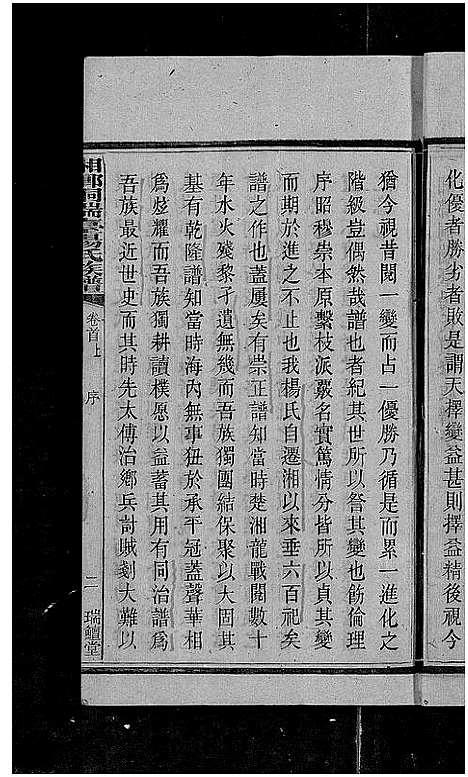 化優者勝劣者敗是謂天擇變益甚則擇益精後視今
猶今視昔閱一變而占一優勝乃循是而累一進化之
階級豈偶然哉譜也者紀其世所以咎其變也飭倫理
序昭穆崇本原繫枝派覈名實篤情分皆所以貞其變
而期於進之不止也我楊氏自遷湘以來垂六百祀矣
譜之作也蓋屢矣有崇正譜知當時楚湘龍戰閱數十
年水火殘黎孑遺無幾而吾族獨團結保聚以大固其
基有乾隆譜知當時海內無事狃於承平冠蓋聲華相
為炫耀而吾族獨耕讀樸愿以益蓄其用有同治譜為
吾族最近世史而其時先太傅治鄉兵討賊剗大難以
湘鄉洞瑞亭楊氏族譜
卷首上
序
二
瑞鱣堂